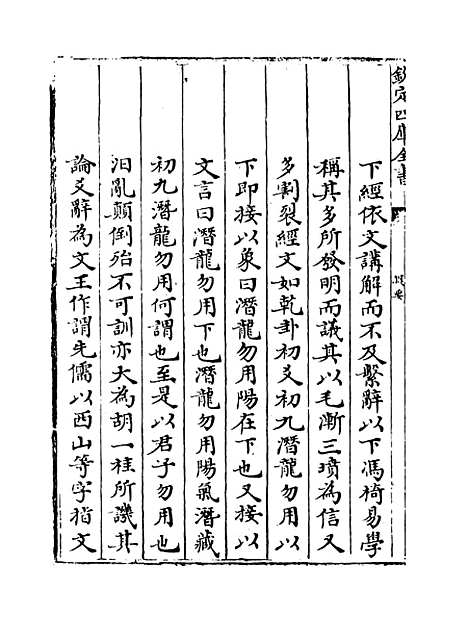 欽定四庫全書
提要
下經依文講解而不及繫辭以下馮椅易學
稱其多所發明而議其以毛漸三墳為信又
多割裂經文如乾卦初爻初九潛龍勿用以
下即接以象曰潛龍勿用陽在下也又接以
文言曰潛龍勿用下也潛龍勿用陽氣潛藏
初九潛龍勿用何謂也至是以君子勿用也
汨亂顛倒殆不可訓亦大為胡一桂所譏其
論爻辭為文王作謂先儒以西山等字指文